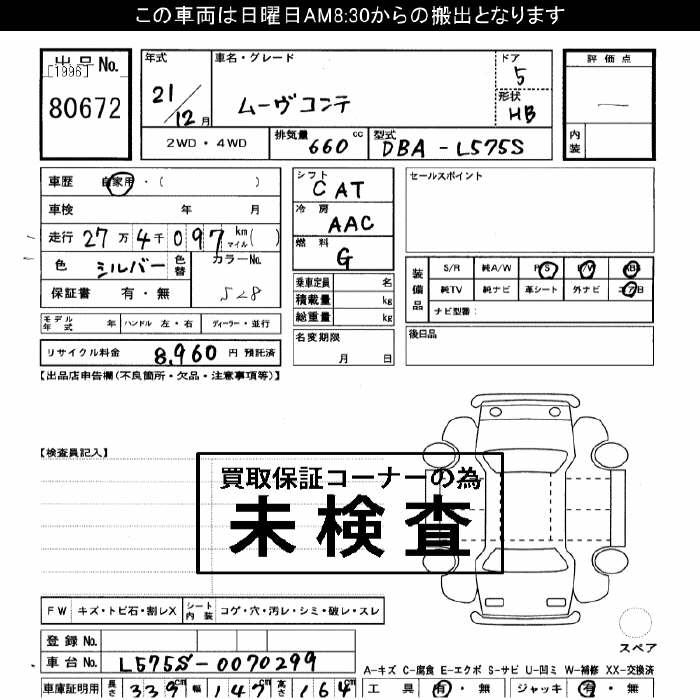 この車両は日曜日AM8:30からの搬出となります
出品No. 年式 車名・グレード ドア 評価点
[1996] 5
80672 21/12月 ムーヴコンテ 形状 HB
内装
2WD・4WD 排気量 660 cc 型式 DBA-L575S
車歴 自家用・( ) シフト CAT セールスポイント
車検 年 月 冷房 AAC
走行 27万4千097 km マイル( ) 燃料 G
色 シルバー 色替 カラーNo. 528
装備品 S/R 純A/W P/S P/W ABS
保証書 有・無 乗車定員 名 純TV 純ナビ 革シート 外ナビ エアB
積載量 kg ナビ型番:
モデル年式 年 ハンドル 左・右 ディーラー・並行 総重量 kg
リサイクル料金 8,960 円 預託済 名変期限 月 日 後日品
【出品店申告欄(不良箇所・欠品・注意事項等)】
【検査員記入】
買取保証コーナーの為
未検査
FW キズ・トビ石・割レX シート内装 コゲ・穴・汚レ・シミ・破レ・スレ
スペア
登録No.
車台No. L575S-0070299
A-キズ C-腐食 E-エクボ S-サビ U-凹ミ W-補修 XX-交換済
車庫証明用 長さ 339cm 幅 147cm 高さ 164cm 工具 有・無 ジャッキ 有・無